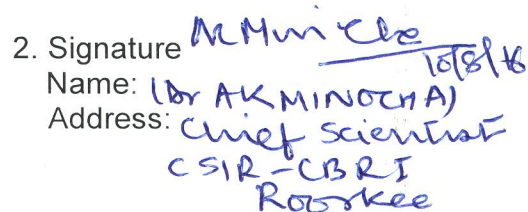 2. Signature AKMinocha
10/8/16
Name: (Dr AK MINOCHA)
Address: Chief Scientist
CSIR-CBRI
Roorkee